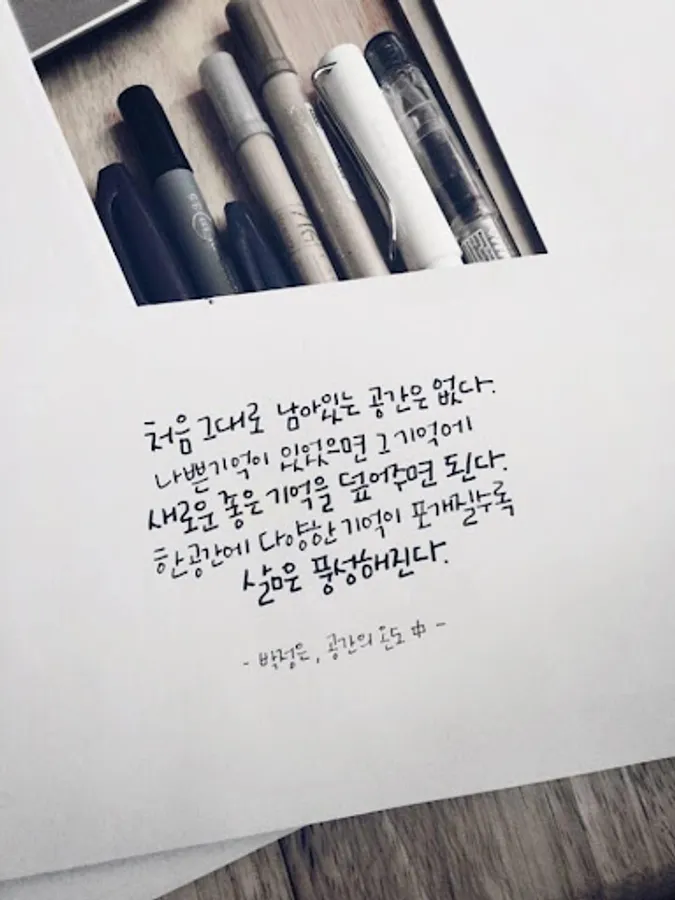 처음 그대로 남아있는 공간은 없다.
나쁜기억이 있었으면 그 기억에
새로운 좋은 기억을 덮어주면 된다.
한공간에 다양한 기억이 포개질수록
삶은 풍성해진다.
- 박정은, 공간의 온도 中 -